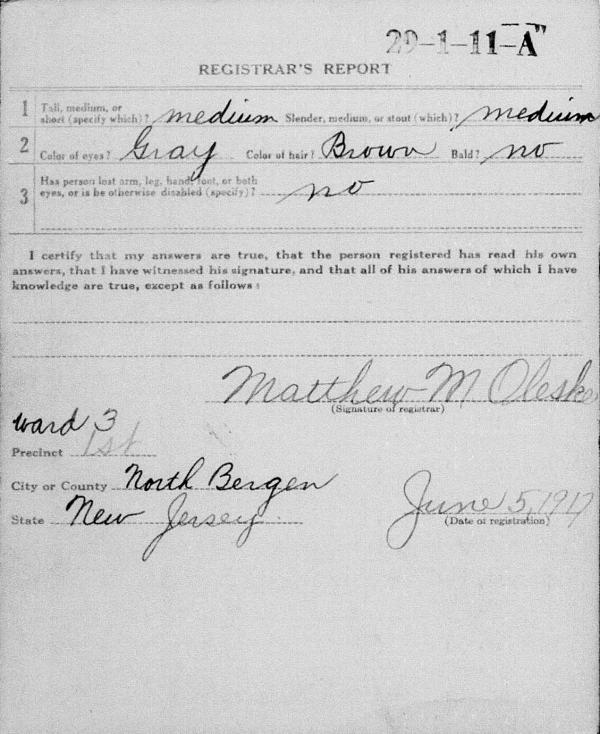 29-1-11-A"
REGISTRAR'S REPORT
1 Tall, medium, or short (specify which)? medium Slender, medium, or stout (which)? medium
2 Color of eyes? Gray Color of hair? Brown Bald? no
3 Has person lost arm, leg, hand, foot, or both eyes, or is he otherwise disabled (specify)? no
I certify that my answers are true, that the person registered has read his own
answers, that I have witnessed his signature, and that all of his answers of which I have
knowledge are true, except as follows:
Matthew M Oleske
(Signature of registrar)
ward 3
Precinct 1st
City or County North Bergen
State New Jersey
June 5, 1917
(Date of registration)